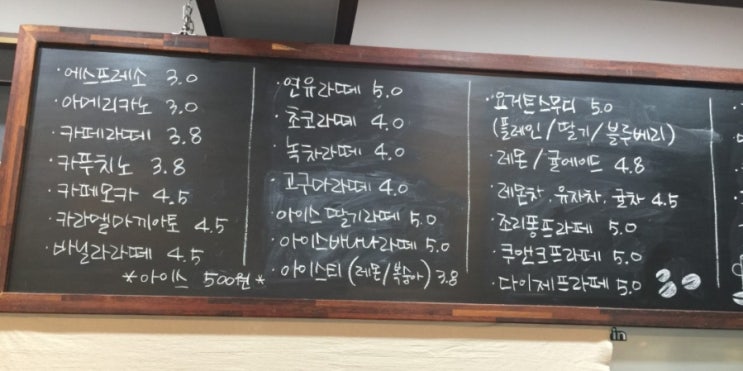 · 에스프레소 3.0
· 아메리카노 3.0
· 카페라떼 3.8
· 카푸치노 3.8
· 카페모카 4.5
· 카라멜마끼아토 4.5
· 바닐라라떼 4.5
*아이스 500원*
· 연유라떼 5.0
· 초코라떼 4.0
· 녹차라떼 4.0
· 고구마라떼 4.0
· 아이스딸기라떼 5.0
· 아이스바나나라떼 5.0
· 아이스티 (레몬/복숭아) 3.8
· 요거트스무디 5.0
(플레인/딸기/블루베리)
· 레몬/귤에이드 4.8
· 레몬차. 유자차. 귤차 4.5
· 조리퐁프라페 5.0
· 쿠앤크프라페 5.0
· 다이제프라페 5.0
in